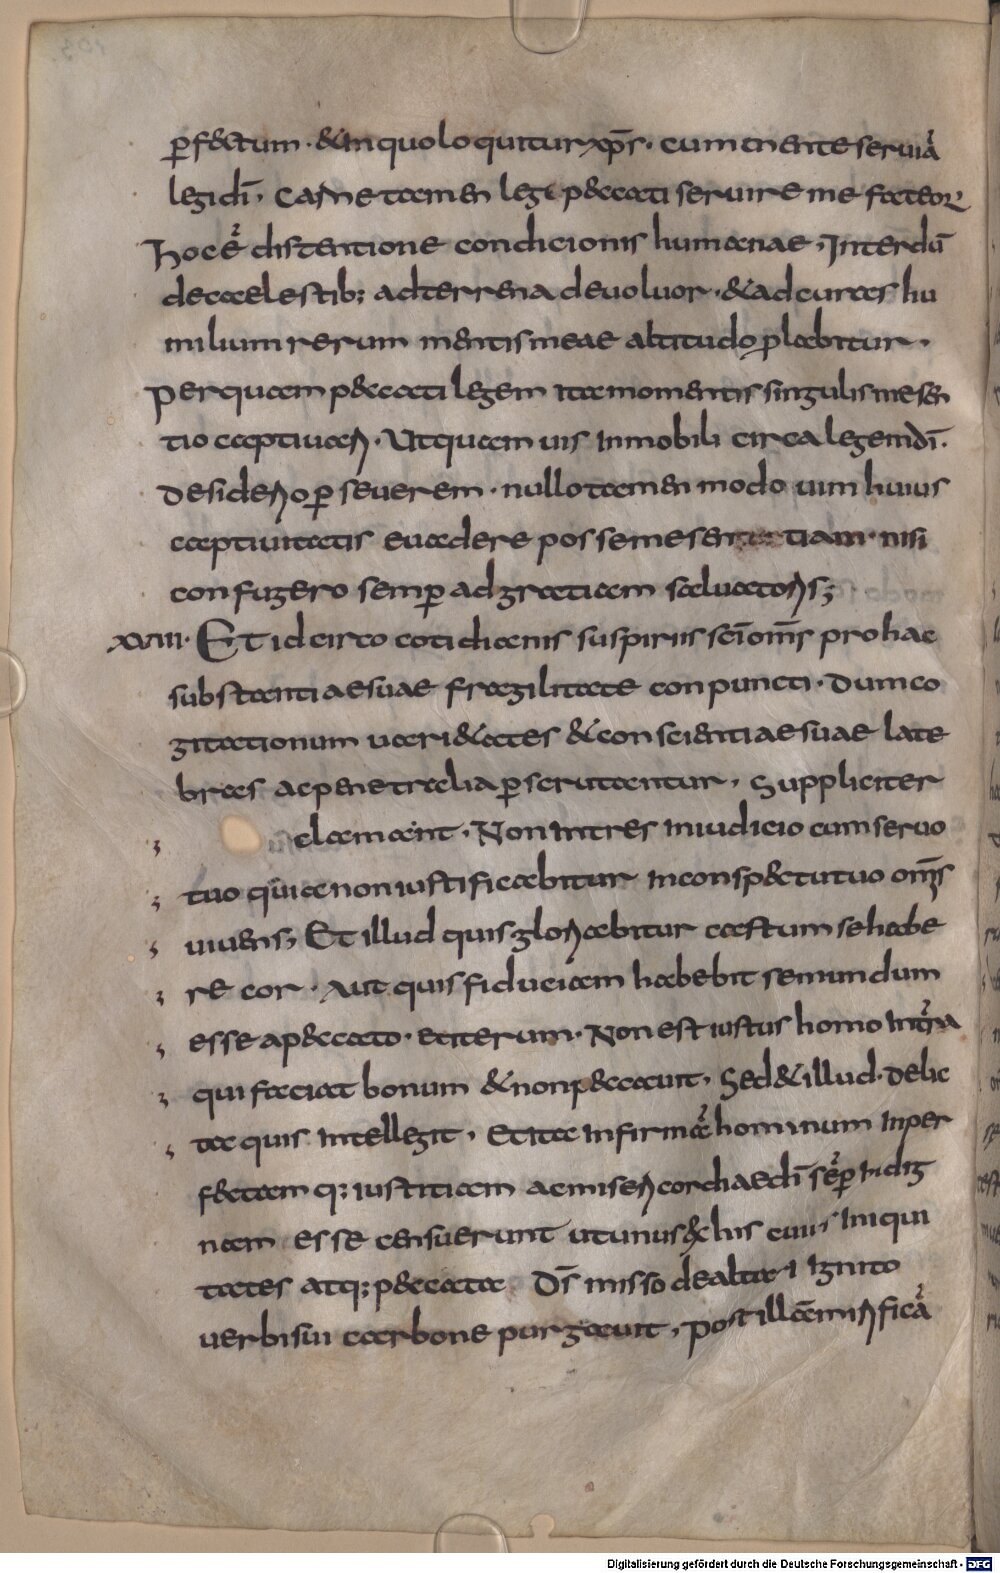 ꝑf&tum · &inquoloquiturxp̄s · cum mente seruiā
legidī · Carne tamen legi p&ccati seruire me fateor
Hoc ē distentione condicionis humanae · Interdū
decaelestib; adterrena deuoluor · &adcuras hu
milium rerum mentismeae altitudo ꝑlabitur ·
Perquam p&ccati legem ita momentis singulis me sen
tio captiuari · Utquam uis inmobili circa legemdī ·
desiderio ꝑseuerem · nullotamen modo uim huius
captiuitatis euadere possemesentiam · nisi
confugero semꝑ adgratiam saluatoris;
XVIII · Et idcirco cotidianis suspiriis scīomēs prohac
substantiaesuae fragilitate conpuncti · dumco
gitationum uari&ates &conscientiaesuae late
bras acpenetralia ꝑscrutantur · suppliciter
clamant · Non intres iniudicio cumseruo
tuo quia noniustificabitur inconsp&tutuo omīs
uiuens; Et illud quis gloriabitur castum sehabe
re cor · Aut quis fiduciam habebit semundum
esse ap&ccato · etiterum · Non est iustus homo interra
qui faciat bonum &nonp&ccauit · Sed&illud · delic
ta quis intellegit · Etita infirmā hominum inper
f&tamq; iustitiam acmisericordiaedī sēꝑ indig
nam esse censuerunt utunus&his cuius iniqui
tates atq; p&ccata dī misso dealtari ignito
uerbisui carbone purgauit · post illāmirificā
Digitalisierung gefördert durch die Deutsche Forschungsgemeinschaft - DFG